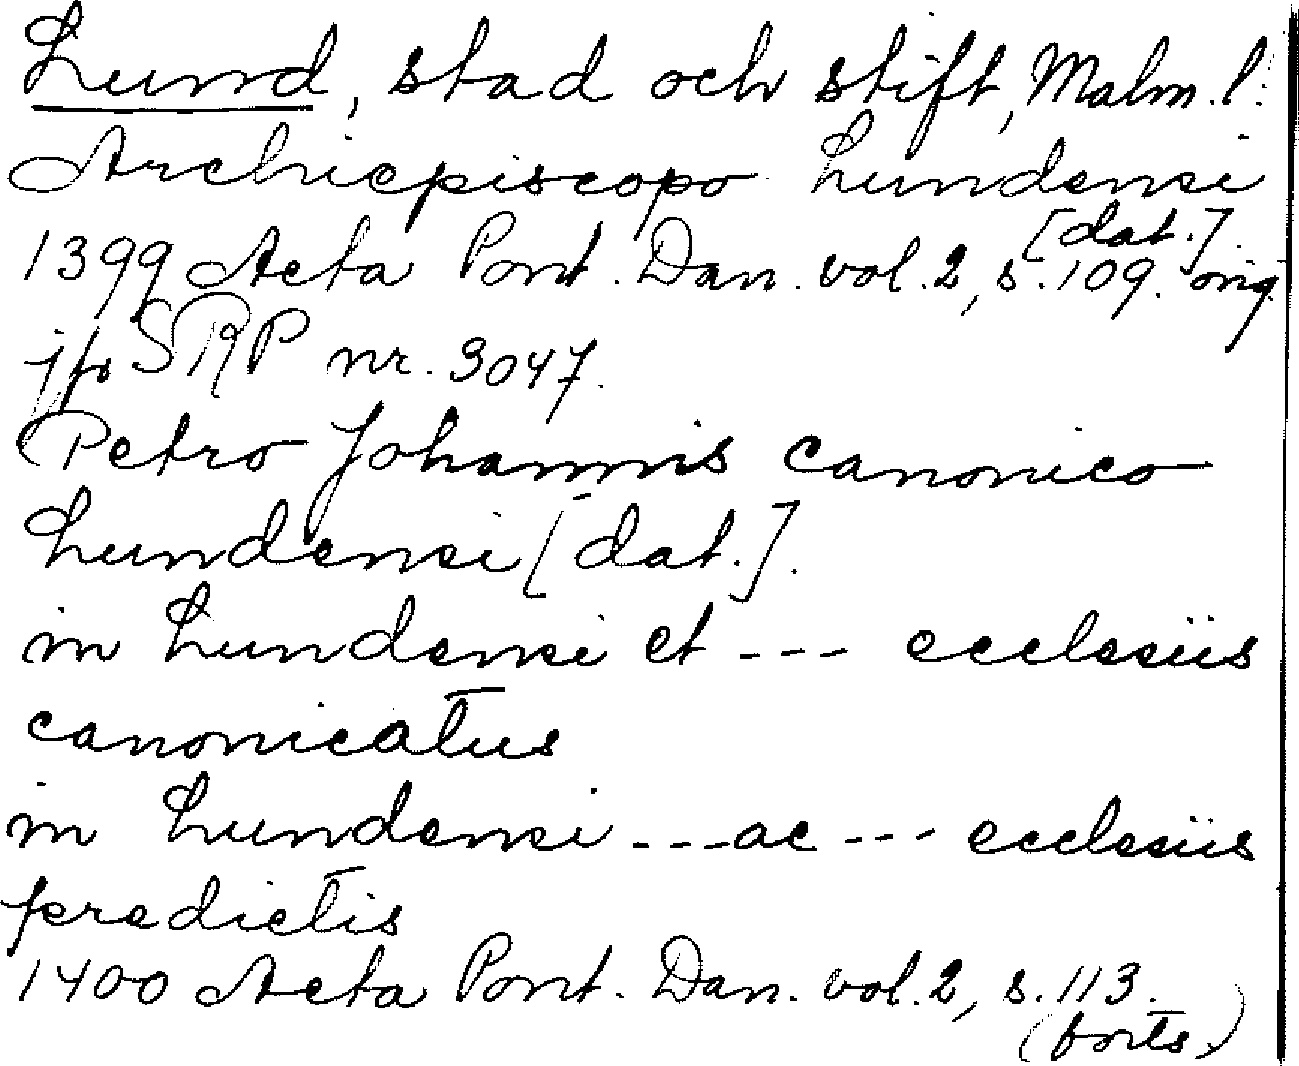 Lund, stad och stift, Malm. l.
Archiepiscopo Lundensi
[dat.].
1399 Acta Pont. Dan. vol. 2, s. 109. orig.
jfr SRP nr. 3047.
Petro Johannis canonico
Lundensi [dat.].
in Lundensi et --- ecclesiis
canonicatus
in Lundensi --- ac --- ecclesiis
predictis
1400 Acta Pont. Dan. vol. 2, s. 113.
(forts.)